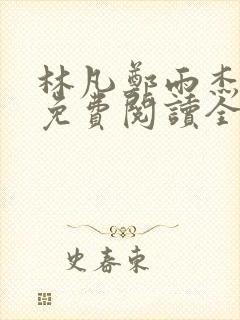 林凡鄭雨杰
免費閱讀全
史春東